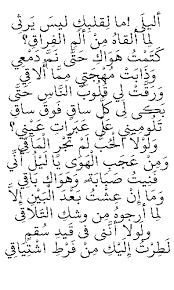 أليلَى !ما لِقلبِكِ ليسَ يَرثى
لِما ألقاهُ مِنْ ألَمِ الفِراقِ؟
كَتَمْتُ هَوَاكِ حَتَّى نَمَّ دَمْعِى
وَذَابَتْ مُهْجَتِي مِمَّا أُلَاقِي
وَرَقَّتْ لِي قُلُوبُ النَّاسِ حَتَّى
بَكَى لِي كُلُّ سَاقٍ فَوقَ سَاقِ
تَلُومِينِي عَلَى عَبَرَاتِ عَيْنِي؟
وَلَوْلَا الْحُبُّ لَمْ تَجْرِ الْمَآقِي
وَمِنْ عَجَبِ الْهَوَى يَا لَيْلَ أَنِّي
فَنِيتُ صَبَابَةً وَهَوَاكِ بَاقِي
وَمَا إِنْ عِشْتُ بَعْدَ الْبَيْنِ إِلَّا
لِمَا أَرجُوهُ مِن وشْكِ التَّلَاقِي
وَلَوْلَا أَنَّنِى فى قَيدِ سُقمٍ
لَطِرْتُ إِلَيْكِ مِنْ فَرْطِ اشْتِيَاقِي